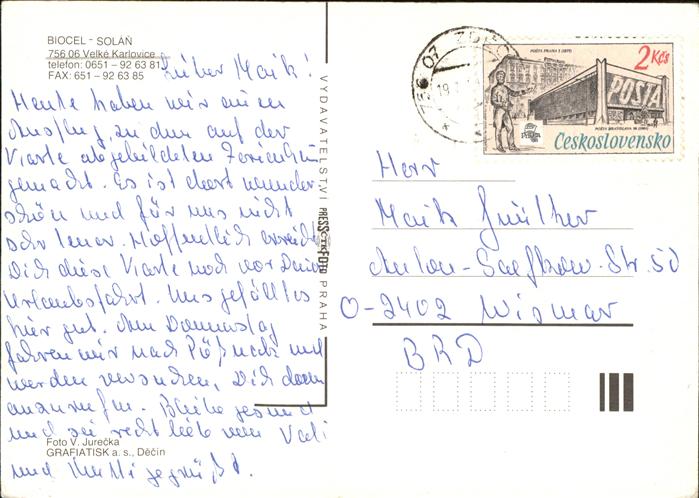 BIOCEL - SOLÁŇ
756 06 Velké Karlovice
telefon: 0651 – 92 63 81
FAX: 651 – 92 63 85
Lieber Maik!
Heute haben wir einen
Ausflug zu dem auf der
Karte abgebildeten Ferienheim
gemacht. Es ist dort wunder-
schön und für uns nicht
sehr teuer. Hoffentlich erreicht
Dich diese Karte noch vor Deiner
Urlaubsfahrt. Uns gefällt es
hier gut. Am Donnerstag
fahren wir nach Pößneck und
werden versuchen, Dich dann
anzurufen. Bleibe gesund
und sei recht lieb von Vati
und Mutti gegrüßt.
Foto V. Jurečka
GRAFIATISK a. s., Děčín
VYDAVATELSTVÍ PRESSFOTO PRAHA
756 07 ZDĚCHOV
POŠTA PRAHA 1 (1871)
2 Kčs
POŠTA
POŠTA BRATISLAVA 56 (1985)
PRAGA
Československo
Herr
Maik Günther
Anton-Saefkow-Str. 50
O-2402 Wismar
BRD